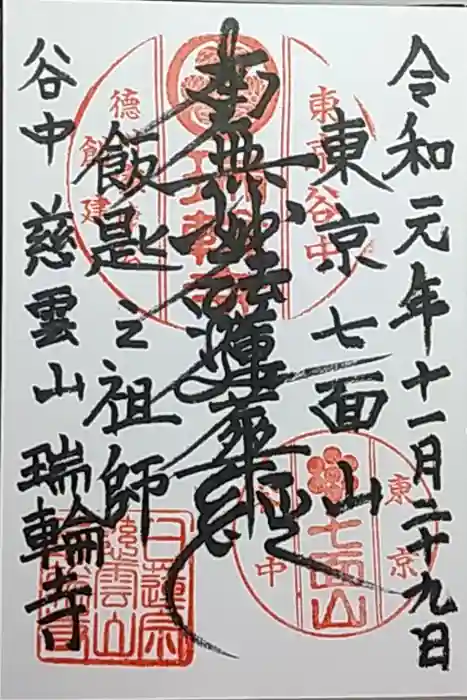 令和元年十一月二十九日
東京七面山
南無妙法蓮華経
飯匙之祖師
谷中慈雲山瑞輪寺
東京谷中
東京
七面山
谷中
日蓮宗
慈雲山